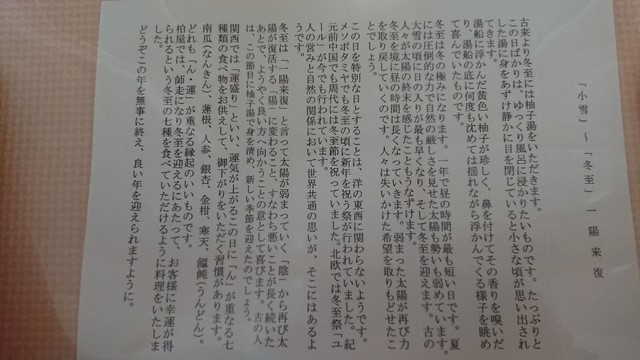 「小雪」～「冬至」　一陽来復
古来より冬至には柚子湯をいただきます。
この日ばかりは、ゆっくり風呂に浸かりたいものです。たっぷりと
した湯に身をあずけ静かに目を閉じていると小さな頃が思い出され
てきます。
湯船に浮かんだ黄色い柚子が珍しく、鼻を付けてその香りを嗅いだ
り、湯船の底に何度も沈めては揺れながら浮かんでくる様子を眺め
て喜んでいたものです。
冬至は冬の極みになります。一年で昼の時間が最も短い日です。夏
には圧倒的な力で自然の厳しさを見せた太陽も勢いも弱めています。
大雪の頃に日の入りが最も早くなり、そして冬至を迎えます。古の
人々が太陽の終末を感じたこともうなずけます。
冬至を境に昼の時間は長くなっていきます。弱まった太陽が再び力
を取り戻していくのです。人々は失いかけた希望を取りもどせたこ
とでしょう。
この日を特別な日とすることは、洋の東西に関わらないようです。
メソポタミヤでも冬至の頃に新年を祝う祭が行われていました。紀
元前中国でも周代には冬至節を祝っていました。北欧では冬至祭「ユ
ール」が今でも行われています。
人の営みと自然の関係において世界共通の思いが、そこにはあるよ
うです。
冬至は「一陽来復」と言って太陽が弱まっていく「陰」から再び太
陽が復活する「陽」に変わること、すなわち悪いことが長く続いた
あとで、ようやく良い方へ向かうことの意として喜びます。古の人
は、この節目に柚子湯で身を清め、新しい季節を迎えたのでしょう。
関西では「運盛り」といい、運気が上がるこの日に「ん」が重なる七
種類の食べ物をお供えして、御下がりをいただく習慣があります。
南瓜（なんきん）蓮根、人参、銀杏、金柑、寒天、饂飩（うんどん）。
どれも「ん・運」が重なる縁起のいいものです。
柏屋では、師走になり冬至を迎えるにあたって、お客様に幸運が得
られるという冬至の七種を食べていただけるように料理をいたしま
した。
どうぞこの年を無事に終え、良い年を迎えられますように。